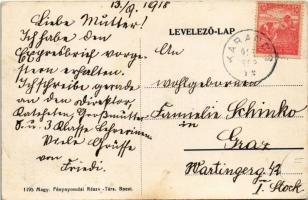 13./9. 1918
Liebe Mutter!
Ich habe den
Expressbrief vorge-
stern erhalten.
Ich schreibe gerade
an den Direktor,
Katecheten, Großmutter
u. 3 Klasse Lehrerinen
Viele Grüsse
von
Friedi.
LEVELEZŐ-LAP
KARÁD
An
wohlgeboren
Familie Schinko
in
Graz
Wartingerg. 42
I. Stock
1196 Magy. Fénynyomdai Részv.-Társ. Bpest.